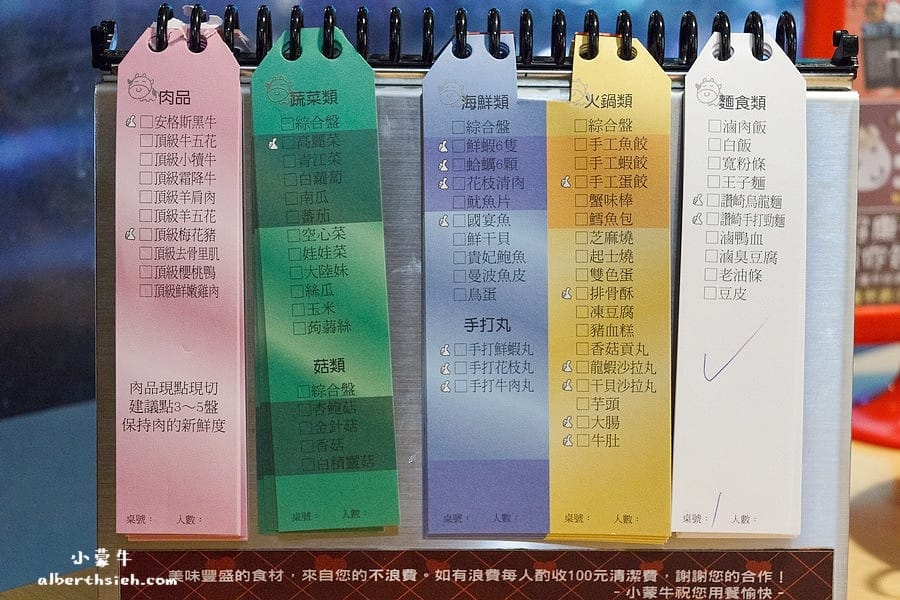 肉品
□安格斯黑牛
□頂級牛五花
□頂級小犢牛
□頂級霜降牛
□頂級羊肩肉
□頂級羊五花
□頂級梅花豬
□頂級去骨里肌
□頂級櫻桃鴨
□頂級鮮嫩雞肉
肉品現點現切
建議點3～5盤
保持肉的新鮮度
桌號： 人數：
蔬菜類
□綜合盤
□高麗菜
□青江菜
□白蘿蔔
□南瓜
□蕃茄
□空心菜
□娃娃菜
□大陸妹
□絲瓜
□玉米
□蒟蒻絲
菇類
□綜合盤
□杏鮑菇
□金針菇
□香菇
□白精靈菇
桌號： 人數：
海鮮類
□綜合盤
□鮮蝦6隻
□蛤蠣6顆
□花枝清肉
□魷魚片
□國宴魚
□鮮干貝
□貴妃鮑魚
□曼波魚皮
□鳥蛋
手打丸
□手打鮮蝦丸
□手打花枝丸
□手打牛肉丸
桌號： 人數：
火鍋類
□綜合盤
□手工魚餃
□手工蝦餃
□手工蛋餃
□蟹味棒
□鱈魚包
□芝麻燒
□起士燒
□雙色蛋
□排骨酥
□凍豆腐
□豬血糕
□香菇貢丸
□龍蝦沙拉丸
□干貝沙拉丸
□芋頭
□大腸
□牛肚
桌號： 人數：
麵食類
□滷肉飯
□白飯
□寬粉條
□王子麵
□讚崎烏龍麵
□讚崎手打勁麵
□滷鴨血
□滷臭豆腐
□老油條
□豆皮
桌號：1 人數：
美味豐盛的食材，來自您的不浪費。如有浪費每人酌收100元清潔費，謝謝您的合作！
- 小蒙牛祝您用餐愉快 -
小蒙牛
alberthsieh.com